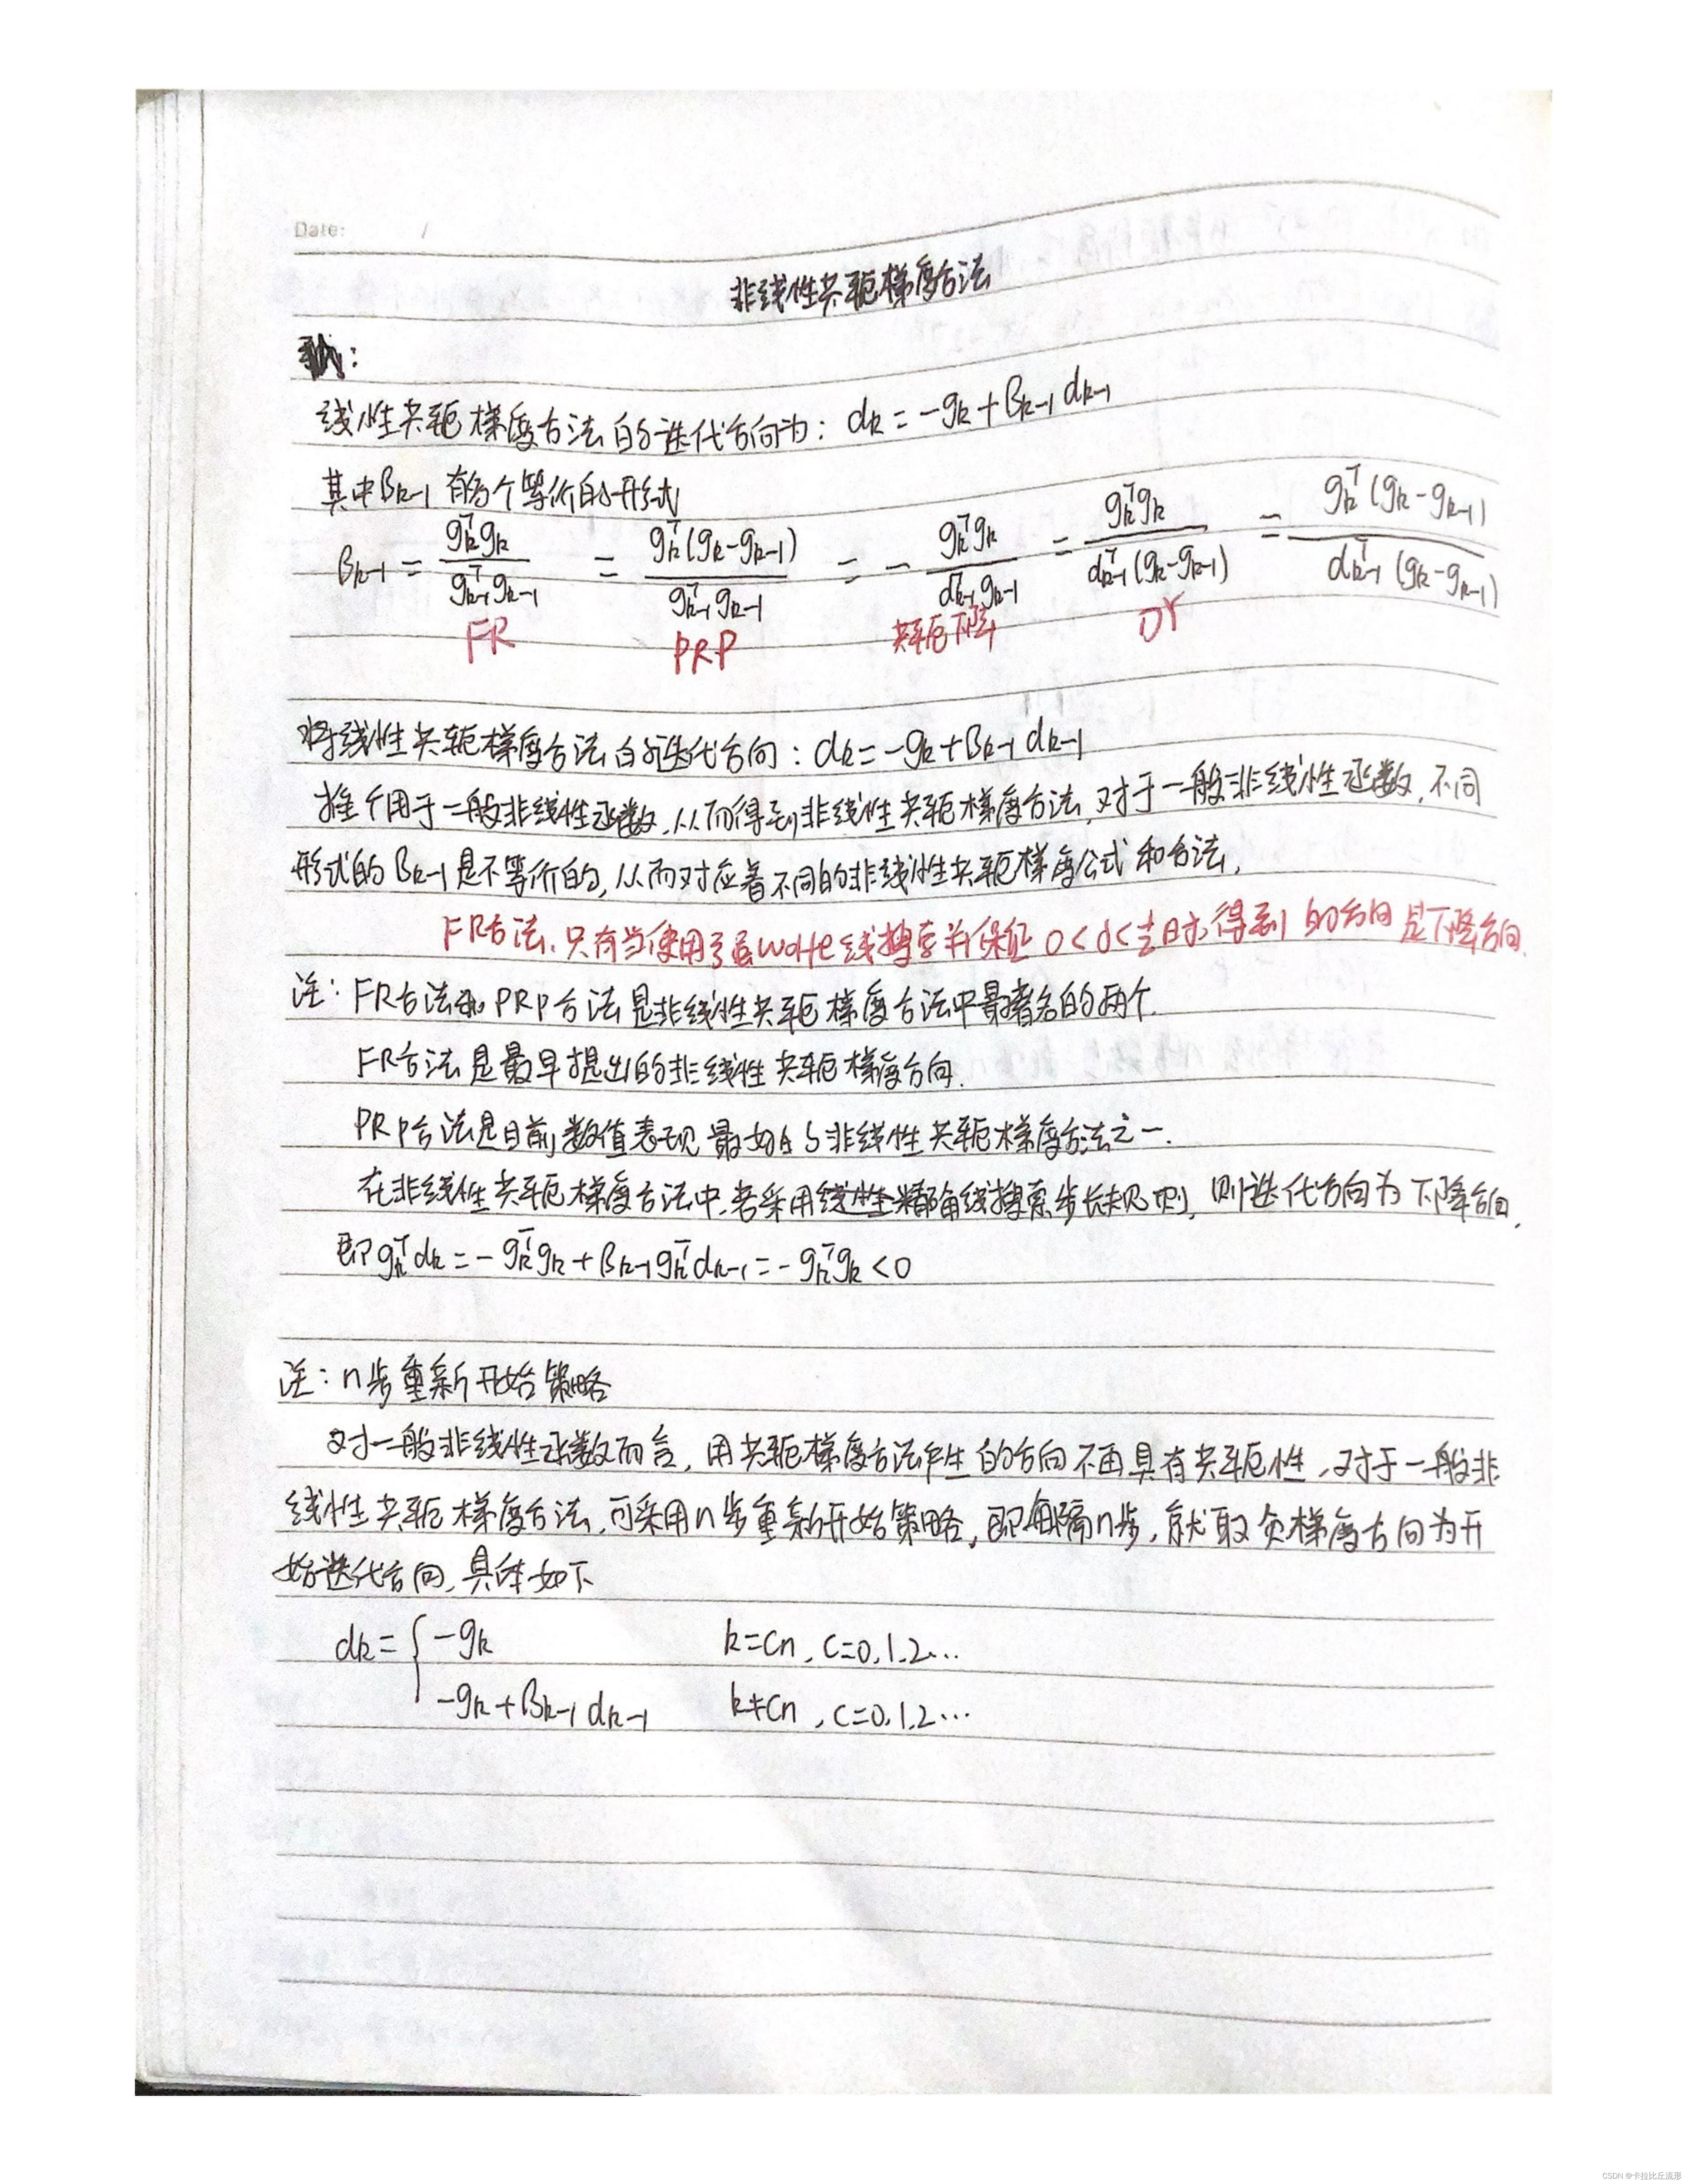 Date: /
非线性共轭梯度方法
:
线性共轭梯度方法的迭代方向为: dₖ = -gₖ + βₖ₋₁ dₖ₋₁
其中βₖ₋₁ 有多个等价的形式
βₖ₋₁ = gₖᵀgₖ / gₖ₋₁ᵀgₖ₋₁ = gₖᵀ(gₖ-gₖ₋₁) / gₖ₋₁ᵀgₖ₋₁ = - gₖᵀgₖ / dₖ₋₁ᵀgₖ₋₁ = gₖᵀgₖ / dₖ₋₁ᵀ(gₖ-gₖ₋₁) = gₖᵀ(gₖ-gₖ₋₁) / dₖ₋₁ᵀ(gₖ-gₖ₋₁)
FR PRP 共轭下降 DY
将线性共轭梯度方法的迭代方向: dₖ = -gₖ + βₖ₋₁ dₖ₋₁
推广用于一般非线性函数, 从而得到非线性共轭梯度方法, 对于一般非线性函数, 不同
形式的 βₖ₋₁ 是不等价的, 从而对应着不同的非线性共轭梯度公式和方法,
FR方法, 只有当使用了强Wolfe线搜索并保证 0<σ<½时, 得到的方向是下降方向.
注: FR方法和PRP方法是非线性共轭梯度方法中最著名的两个.
FR方法是最早提出的非线性共轭梯度方向.
PRP方法是目前数值表现最好的非线性共轭梯度方法之一.
在非线性共轭梯度方法中, 若采用精确线搜索步长规则, 则迭代方向为下降方向,
即 gₖᵀdₖ = -gₖᵀgₖ + βₖ₋₁gₖᵀdₖ₋₁ = -gₖᵀgₖ < 0
注: n步重新开始策略
对一般非线性函数而言, 用共轭梯度方法产生的方向不再具有共轭性, 对于一般非
线性共轭梯度方法, 可采用n步重新开始策略, 即每隔n步, 就取负梯度方向为开
始迭代方向, 具体如下
dₖ = { -gₖ k=cn, c=0,1,2...
-gₖ + βₖ₋₁ dₖ₋₁ k≠cn, c=0,1,2...
CSDN @卡拉比丘流形